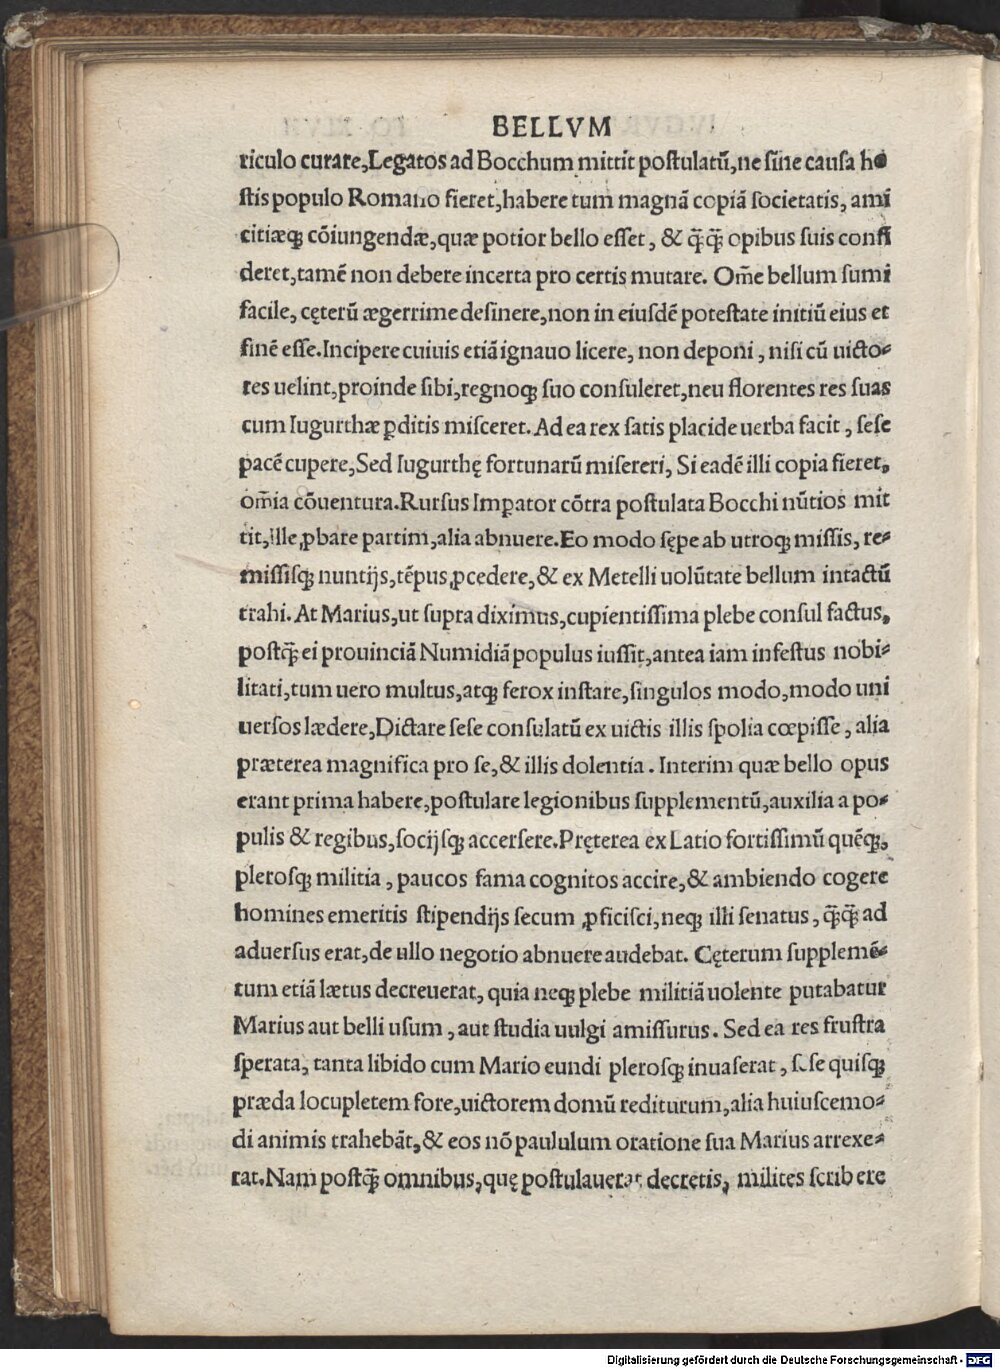 BELLVM
riculo curare,Legatos ad Bocchum mittit postulatū,ne sine causa ho
stis populo Romano fieret,habere tum magnā copiā societatis, ami
citiæq; cōiungendæ,quæ potior bello esset, & q̄q̄ opibus suis confi
deret,tamē non debere incerta pro certis mutare. Om̄e bellum sumi
facile, cęterū ægerrime desinere,non in eiusdē potestate initiū eius et
finē esse.Incipere cuiuis etiā ignauo licere, non deponi, nisi cū uicto-
res uelint,proinde sibi,regnoq; suo consuleret,neu florentes res suas
cum Iugurthæ ꝑditis misceret. Ad ea rex satis placide uerba facit, sese
pacē cupere,Sed Iugurthę fortunarū misereri, Si eadē illi copia fieret,
om̄ia cōuentura.Rursus Imꝑator cōtra postulata Bocchi nūtios mit
tit,ille ꝓbare partim,alia abnuere.Eo modo sępe ab utroq; missis, re-
missisq; nuntijs,tēpus ꝓcedere,& ex Metelli uolūtate bellum intactū
trahi. At Marius,ut supra diximus,cupientissima plebe consul factus,
postq̄ ei prouinciā Numidiā populus iussit,antea iam infestus nobi-
litati,tum uero multus,atq; ferox instare,singulos modo,modo uni
uersos lædere,Dictare sese consulatū ex uictis illis spolia cœpisse, alia
præterea magnifica pro se,& illis dolentia. Interim quæ bello opus
erant prima habere,postulare legionibus supplementū,auxilia a po-
pulis & regibus,socijsq; accersere.Pręterea ex Latio fortissimū quēq;,
plerosq; militia, paucos fama cognitos accire,& ambiendo cogere
homines emeritis stipendijs secum ꝓficisci,neq; illi senatus, q̄q̄ ad
aduersus erat,de ullo negotio abnuere audebat. Cęterum supplemē-
tum etiā lætus decreuerat, quia neq; plebe militiā uolente putabatur
Marius aut belli usum, aut studia uulgi amissurus. Sed ea res frustra
sperata, tanta libido cum Mario eundi plerosq; inuaserat, sese quisq;
præda locupletem fore,uictorem domū rediturum,alia huiuscemo-
di animis trahebāt,& eos nō paululum oratione sua Marius arrexe-
rat.Nam postq̄ omnibus,quę postulauerat decretis, milites scribere
Digitalisierung gefördert durch die Deutsche Forschungsgemeinschaft - DFG